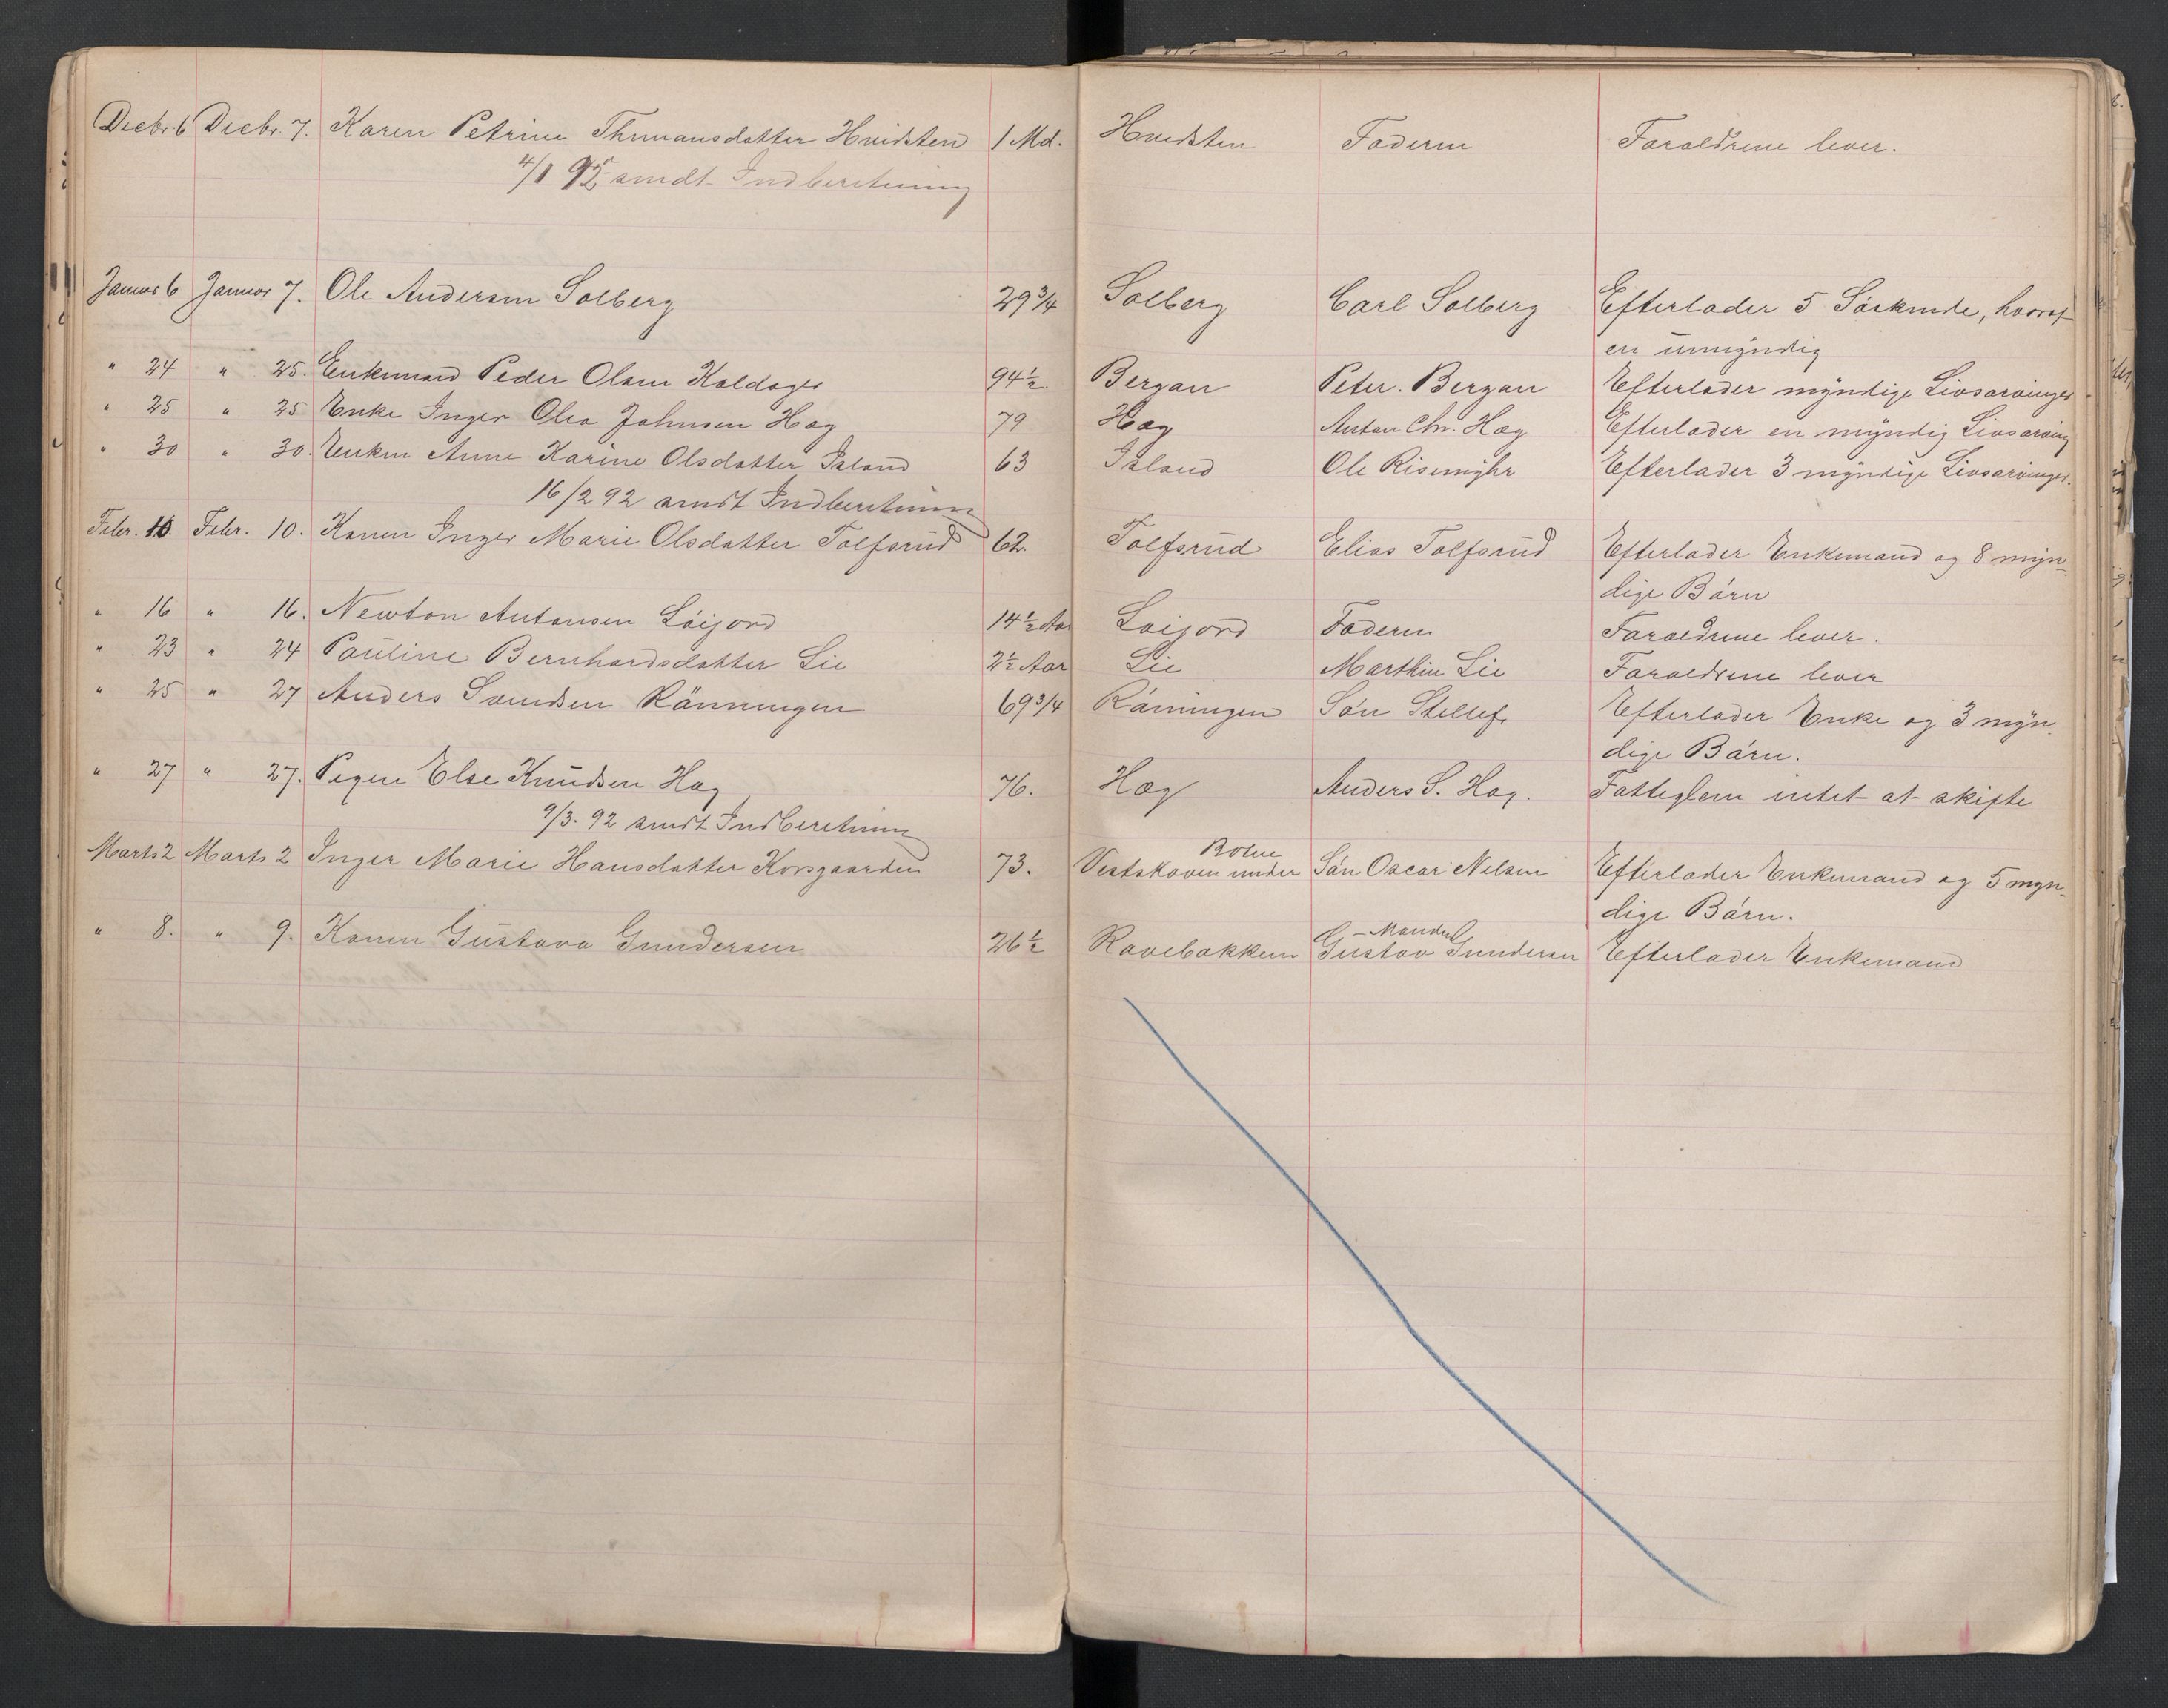 Decbr. 6 Decbr. 7. Karen Petrine Thrunansdatter Hvidsten 1 Md. Hvidsten Faderen Foraldrene lever.
4/1 92 sendt Indberetning
Januar 6 Januar 7. Ole Andersen Solberg 29 3/4 Solberg Carl Solberg Efterlader 5 Söskende, hvoraf
en umyndig
" 24 " 25. Enkemand Peder Olsen Kaldager 94 1/2 Bergan Peter Bergan Efterlader myndige Livsarvinger
" 25 " 25 Enke Inger Olea Johnsen Hag 79 Hag Anton Chr. Hag Efterlader en myndig Livsarving
" 30 " 30. Enken Anne Karine Olsdatter Island 63 Island Ole Risemyhr Efterlader 3 myndige Livsarvinger.
16/2 92 sendt Indberetning
Febr. 10. Febr. 10. Konen Inger Marie Olsdatter Tolfsrud 62. Tolfsrud Elias Tolfsrud Efterlader Enkemand og 8 myn-
dige Börn
" 16 " 16. Newton Antonsen Löijord 14 1/2 Aar Löijord Faderen Foraeldrene lever.
" 23 " 24 Pauline Bernhardsdatter Lie 2 1/2 Aar Lie Marthin Lie Foraeldrene lever
" 25 " 27 Anders Svendsen Rönningen 69 3/4 Rönningen Sön Stellef. Efterlader Enke og 3 myn-
dige Börn.
" 27 " 27. Pigen Else Knudsen Hag 76. Hag Anders S. Hag. Fattiglem intet at skifte
9/3. 92 sendt Indberetning
Marts 2 Marts 2 Inger Marie Hansdatter Korsgaarden 73. Vestskoven under Bolue Sön Oscar Nilsen Efterlader Enkemand og 5 myn-
dige Börn.
" 8. " 9. Konen Gustava Gundersen 26 1/2 Ravebakken Manden Gustav Gundersen Efterlader Enkemand